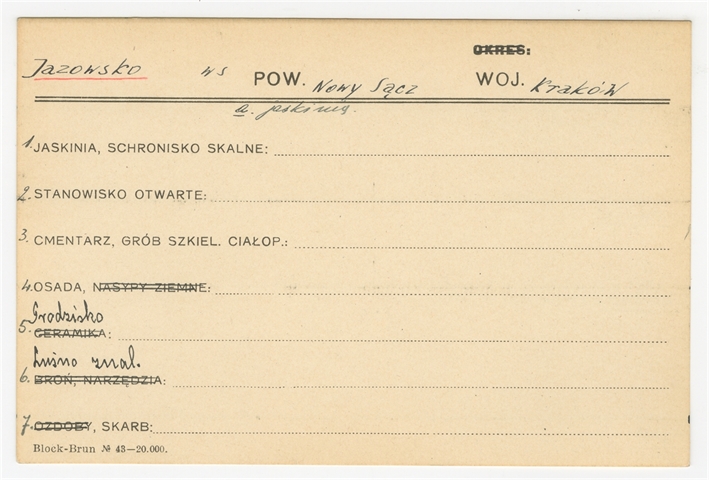 OKRES:
Jazowsko ws POW. Nowy Sącz WOJ. Kraków
a. jaskinia.
1. JASKINIA, SCHRONISKO SKALNE:
2. STANOWISKO OTWARTE:
3. CMENTARZ, GRÓB SZKIEL. CIAŁOP.:
4. OSADA, NASYPY ZIEMNE:
Grodzisko
5. CERAMIKA:
Luźno znal.
6. BROŃ, NARZĘDZIA:
7. OZDOBY, SKARB:
Block-Brun № 43—20.000.